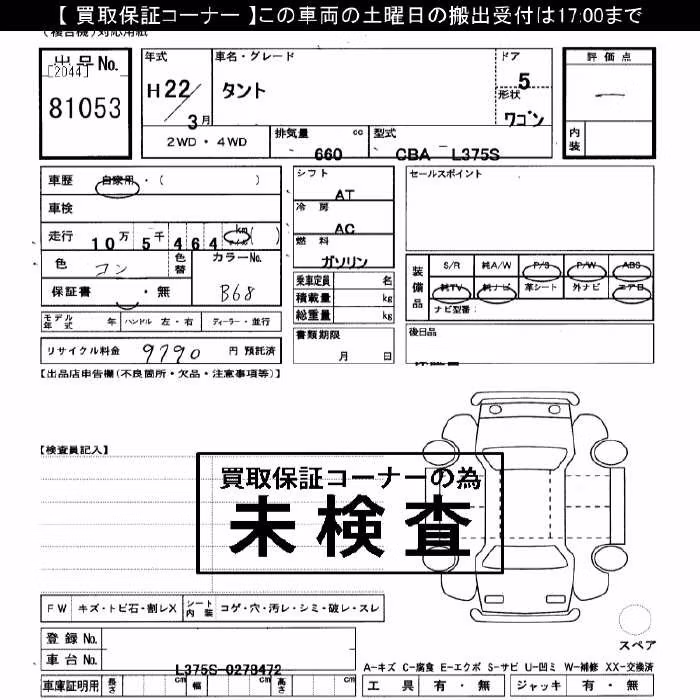 【 買取保証コーナー 】この車両の土曜日の搬出受付は17:00まで
(複合機)対応用紙
出品No.
[2044]
81053
年式
H22/3月
車名・グレード
タント
ドア
5
形状
ワゴン
評価点
内装
2WD・4WD
排気量 660 cc
型式 CBA L375S
車歴 自家用・( )
車検
走行 10万5千464 km( )
色 コン
色替
カラーNo.
B68
保証書 ・無
モデル年式 年
ハンドル 左・右
ディーラー・並行
リサイクル料金 9790 円 預託済
シフト
AT
冷房
AC
燃料
ガソリン
乗車定員 名
積載量 kg
総重量 kg
書類期限
月 日
セールスポイント
装備品
S/R 純A/W P/S P/W ABS
純TV 純ナビ 革シート 外ナビ エアB
ナビ型番:
後日品
【出品店申告欄(不良箇所・欠品・注意事項等)】
【検査員記入】
買取保証コーナーの為
未検査
FW キズ・トビ石・割レX
シート内装 コゲ・穴・汚レ・シミ・破レ・スレ
スペア
登録No.
車台No.
L375S-0278472
車庫証明用 長さ cm 幅 cm 高さ cm
A-キズ C-腐食 E-エクボ S-サビ U-凹ミ W-補修 XX-交換済
工具 有・無
ジャッキ 有・無